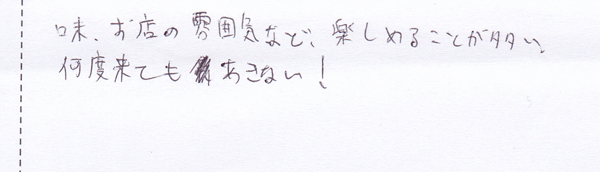 味、お店の雰囲気など、楽しめることが多い。
何度来てもあきない！